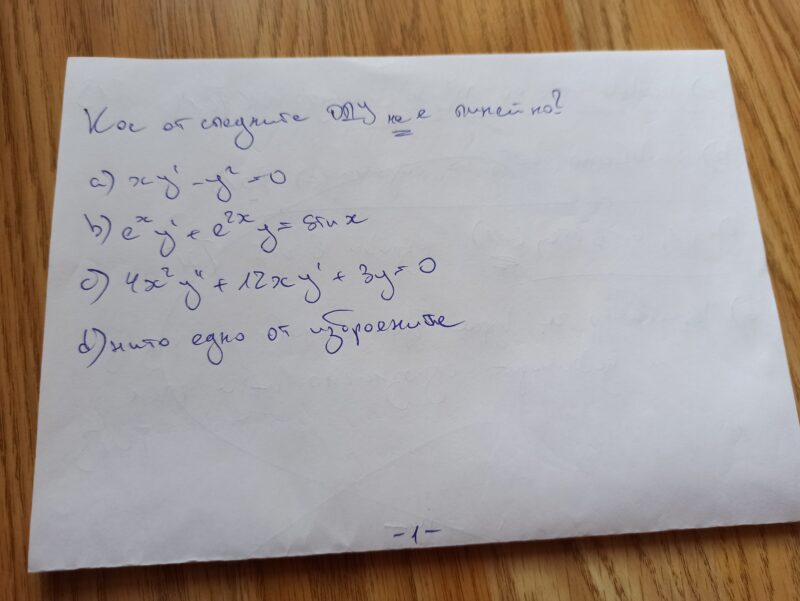 Кое от следните ОДУ не е линейно?
a) xy' - y² = 0
b) eˣy' + e²ˣy = sin x
c) 4x²y'' + 12xy' + 3y = 0
d) нито едно от изброените
-1-